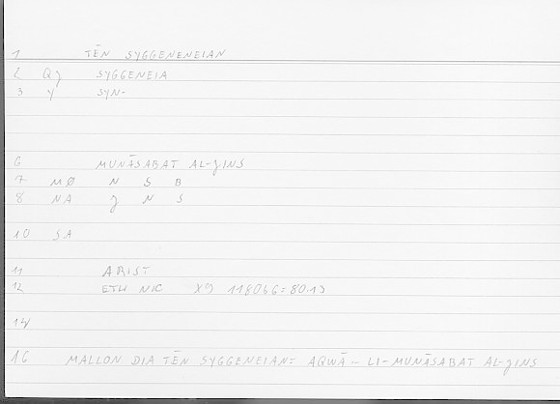 1 TĒN SYGGENENEIAN
2 QJ SYGGENEIA
3 Y SYN-
6 MUNĀSABAT AL-JINS
7 MØ N S B
8 NA J N S
10 SA
11 ARIST
12 ETH NIC X9 1180b6=80.13
14
16 MALLON DIA TĒN SYGGENEIAN= AQWĀ - LI-MUNĀSABAT AL-JINS